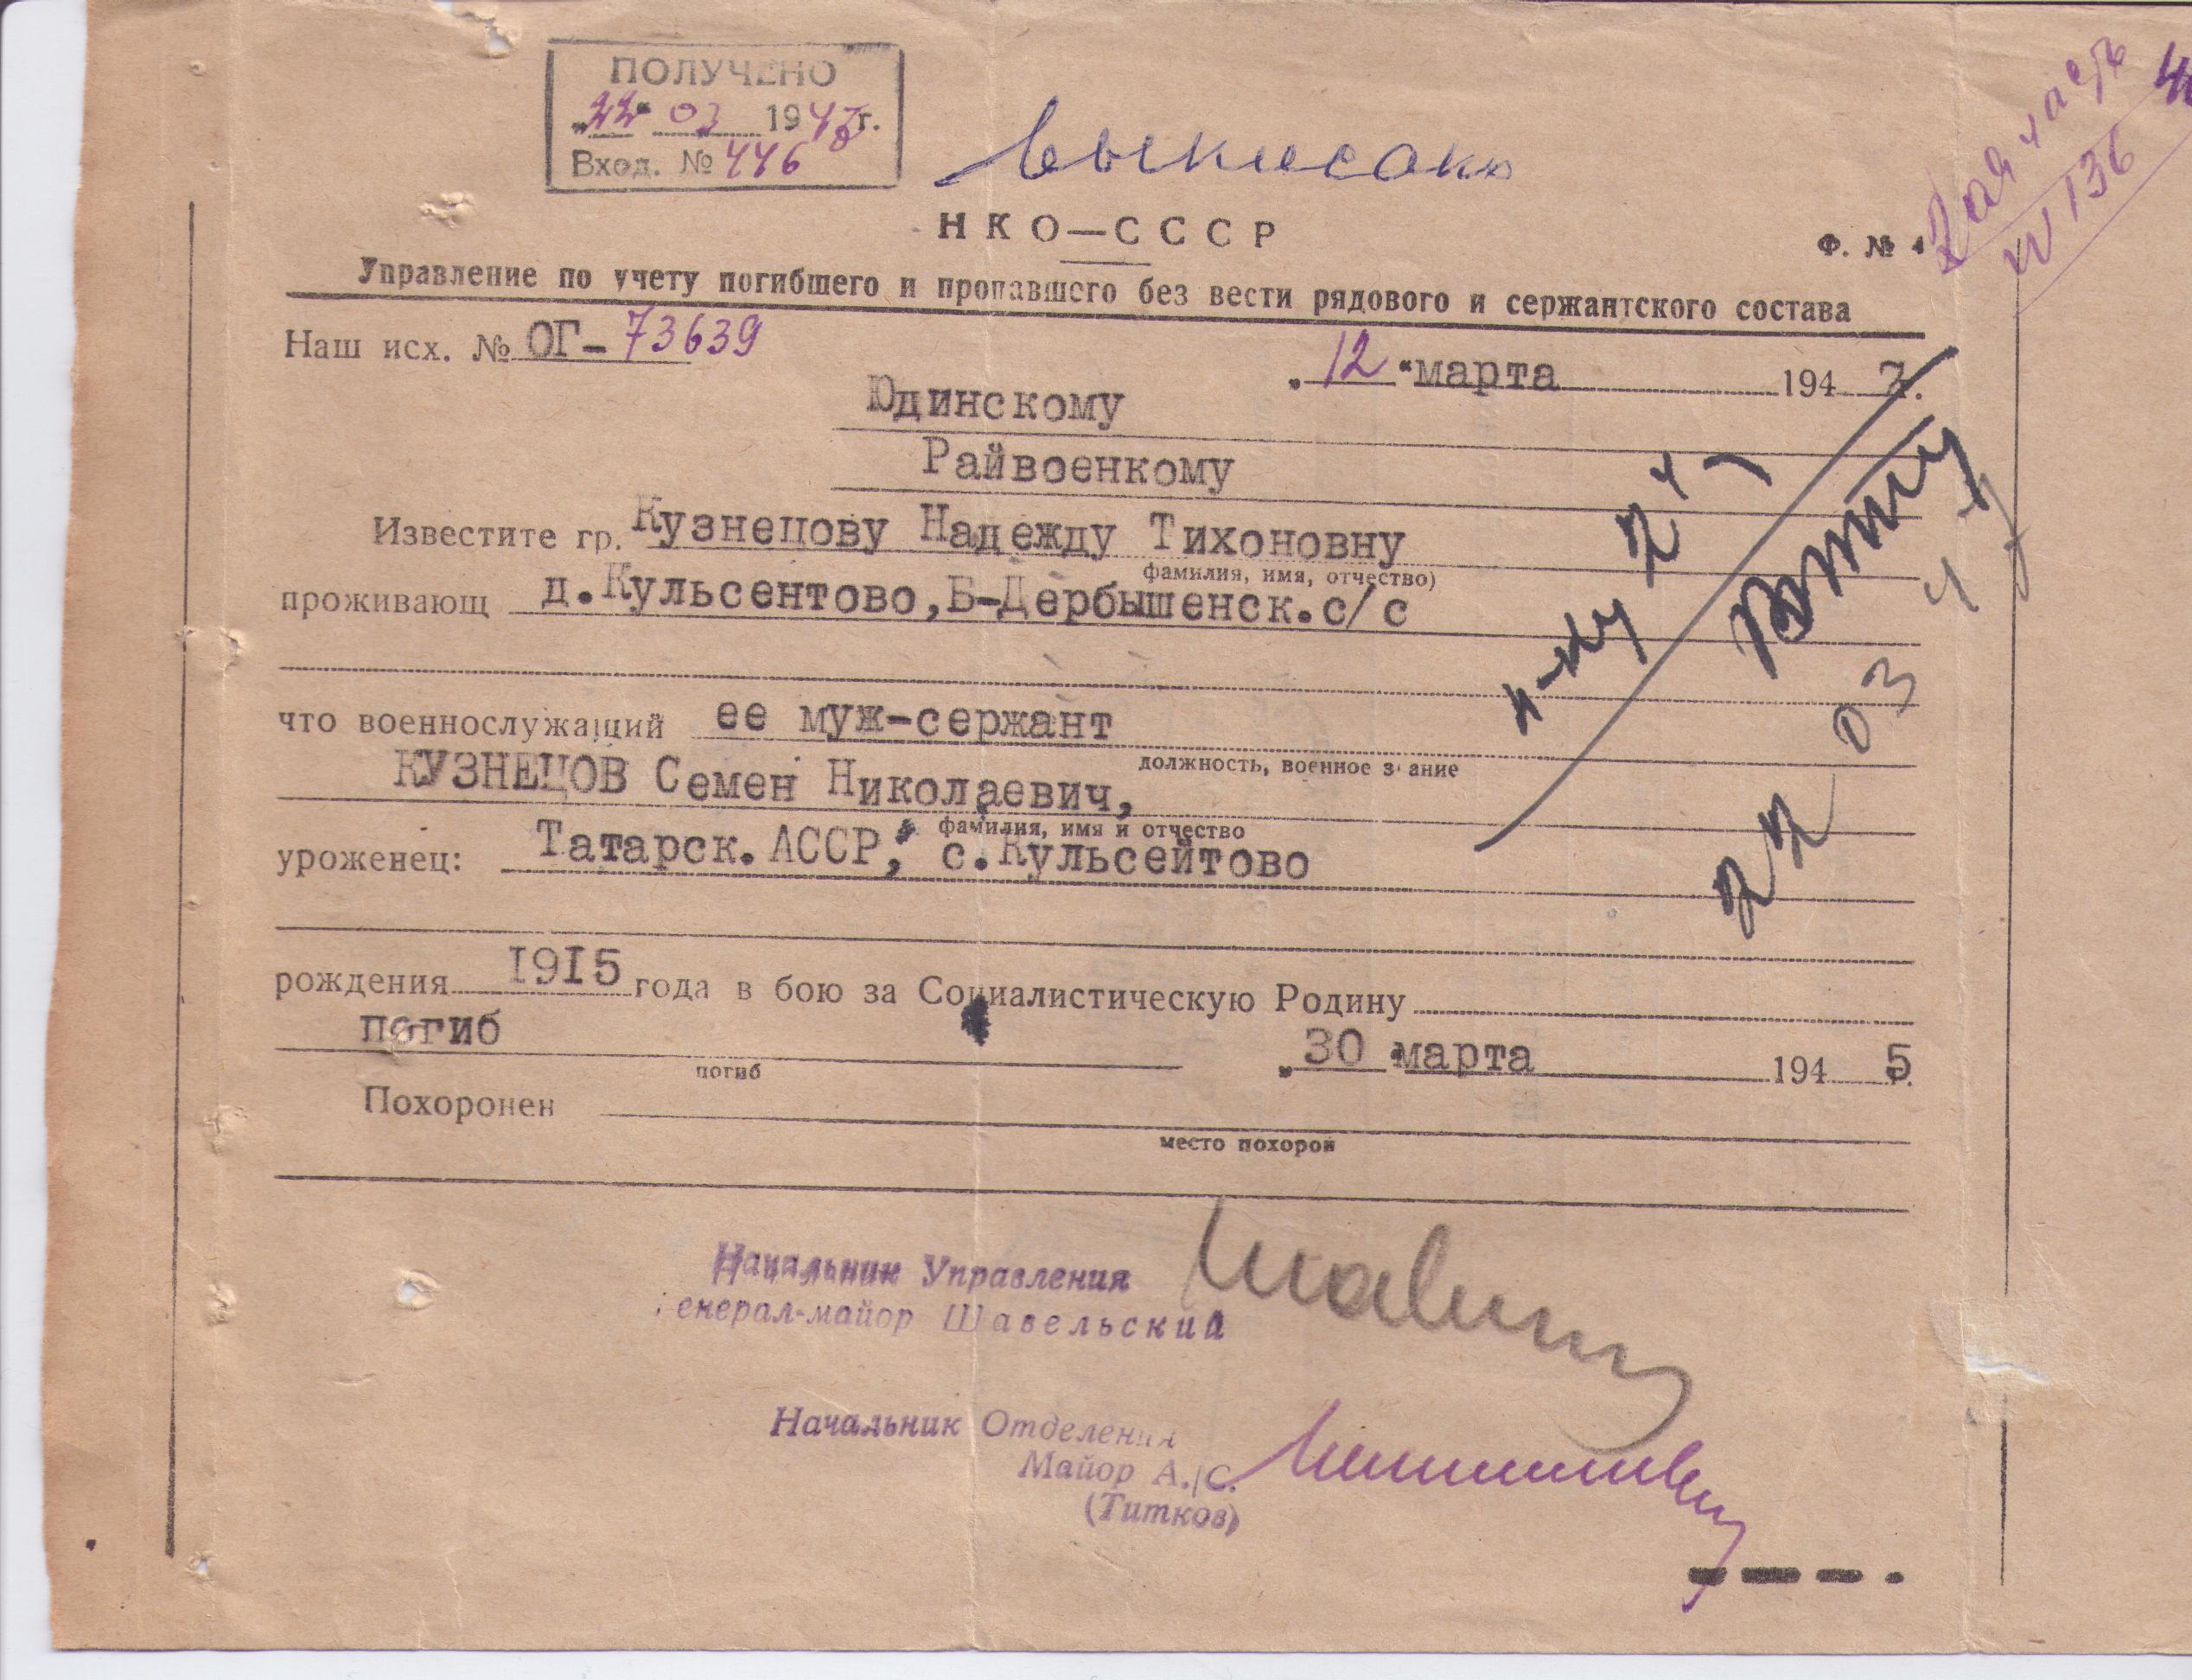 ПОЛУЧЕНО
"22" 03 1947 г.
Вход. № 446
выписано
2ая часть
N 136
НКО—СССР
Ф. № 4
Управление по учету погибшего и пропавшего без вести рядового и сержантского состава
Наш исх. № ОГ-73639
"12" марта 1947.
Юдинскому
Райвоенкому
Известите гр. Кузнецову Надежду Тихоновну
фамилия, имя, отчество)
проживающ д.Кульсентово,Б-Дербышенск.с/с
н-ку 2ч
22 03 47
что военнослужащий ее муж-сержант
должность, военное звание
КУЗНЕЦОВ Семен Николаевич,
фамилия, имя и отчество
уроженец: Татарск.АССР, с.Кульсейтово
рождения 1915 года в бою за Социалистическую Родину
погиб "30" марта 1945
погиб
Похоронен
место похорон
Начальник Управления
Генерал-майор Шавельский
Начальник Отделения
Майор А./С.
(Титков)